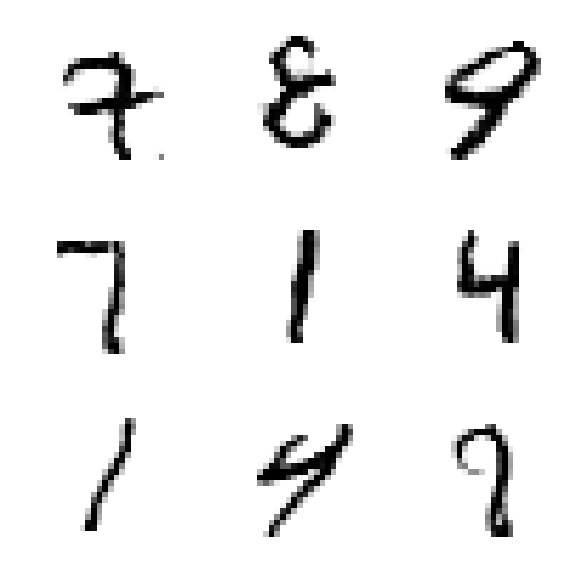 7 8 9
7 1 4
1 4 9